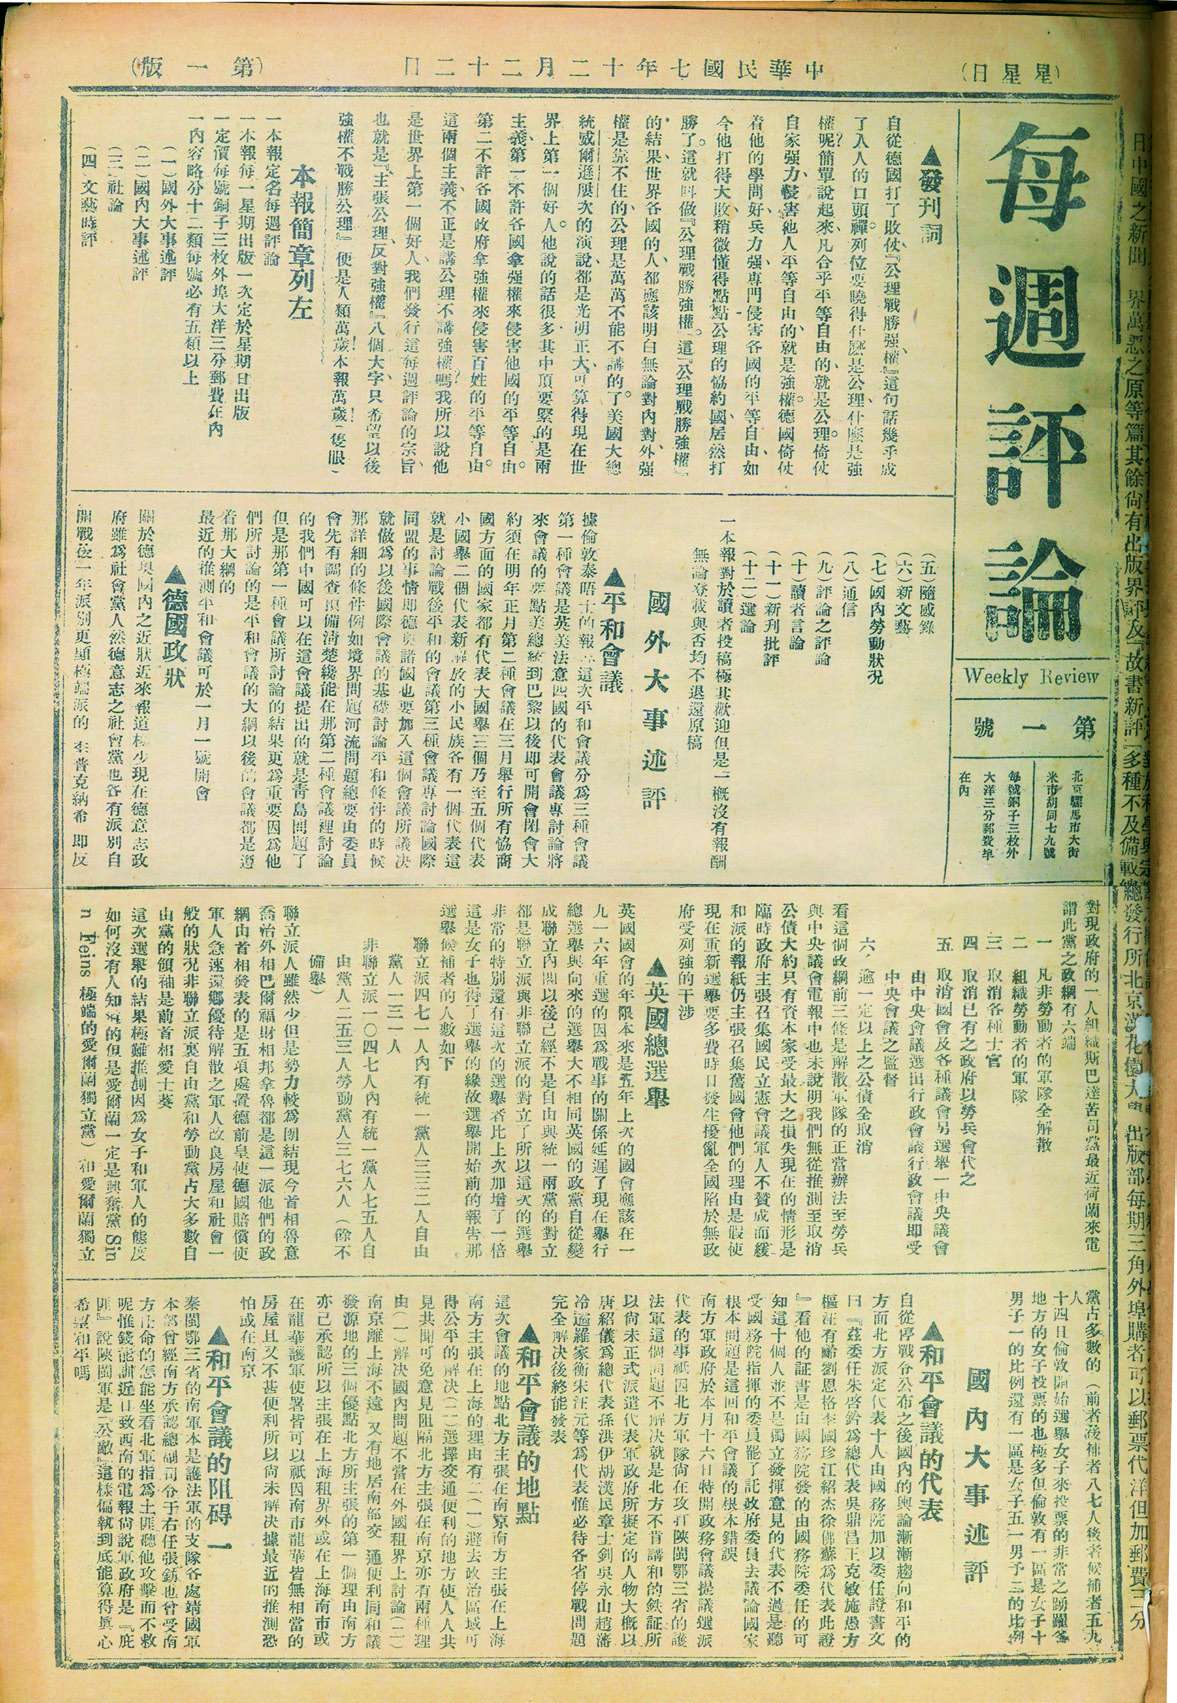 (日星星)
中華民國七年十二月二十二日
(第一版)
每週評論
Weekly Review
第一號
北京騾馬市大街
米市胡同七九號
每號銅子三枚外
大洋三分郵費準
在內
▲發刊詞
自從德國打了敗仗、『公理戰勝強權』這句話幾乎成
了人人的口頭禪。列位要曉得什麼是公理什麼是強
權呢？簡單說起來、凡合乎平等自由的、就是公理。倚仗
自家強力、侵害他人平等自由的、就是強權。德國倚仗
着他的學問好、兵力强、專門侵害各國的平等自由、如
今他打得大敗、稍微懂得點公理的協約國、居然打
勝了。這就叫做『公理戰勝強權』。這『公理戰勝強權』
的結果、世界各國的人、都應該明白、無論對內對外、强
權是靠不住的、公理是萬萬不能不講的了。美國大總
統威爾遜屢次的演說、都是光明正大、可算得現在世
界上第一個好人。他說的話很多、其中頂要緊的是兩
主義、第一不許各國拿强權來侵害他國的平等自由。
第二不許各國政府拿強權來侵害百姓的平等自由。
這兩個主義、不正是講公理不講強權嗎？我所以說他
是世界上第一個好人。我們發行這每週評論的宗旨、
也就是『主張公理、反對強權』八個大字、只希望以後
強權不戰勝公理、便是人類萬歲！本報萬歲！(隻眼)
本報簡章列左
一本報定名每週評論
一本報每一星期出版一次定於星期日出版
一定價每號銅子三枚外埠大洋三分郵費在內
一內容略分十二類每號必有五類以上
(一)國外大事述評
(二)國內大事述評
(三)社論
(四)文藝時評
(五)隨感錄
(六)新文藝
(七)國內勞動狀況
(八)通信
(九)評論之評論
(十)讀者言論
(十一)新刊批評
(十二)選論
一本報對於讀者投稿極其歡迎但是一概沒有報酬
無論登載與否均不退還原稿
國外大事述評
▲平和會議
據倫敦泰晤士的報這次平和會議分爲三種會議
第一種會議是英美法意四國的代表會議專討論將
來會議的要點美總統到巴黎以後即可開會閉會大
約須在明年正月第二種會議在三月舉行所有協商
國方面的國家都有代表大國舉三個乃至五個代表
小國舉二個代表新解放的小民族各有一個代表這
就是討論戰後平和的會議第三種會議專討論國際
同盟的事情即德奧諸國也要加入這個會議所議決
就做爲以後國際會議的基礎討論平和條件的時候
那詳細的條件例如境界問題河流問題總要由委員
會先有調查預備清楚纔能在那第二種會議裡討論
的我們中國可以在這會議提出的就是青島問題了
但是那第一種會議所討論的結果更爲重要因爲他
們所討論的是平和會議的大綱以後的會議都是遵
着那大綱的
最近的推測平和會議可於一月一號開會
▲德國政狀
關於德奧國內之近狀近來報道極少現在德意志政
府雖爲社會黨人然德意志之社會黨也各有派別自
開戰後一年派別更顯極端派的李普克納希即反
對現政府的一人組織斯巴達苦司黨最近荷蘭來電
謂此黨之政綱有六端
一　凡非勞動者的軍隊全解散
二　組織勞動者的軍隊
三　取消各種士官
四　取消已有之政府以勞兵會代之
五　取消國會及各種議會另選舉一中央議會
由中央會議選出行政會議行政會議即受
中央會議之監督
六、逾一定以上之公債全取消
看這個政綱前三條是解散軍隊的正當辦法至勞兵
與中央議會電報中也未說明我們無從推測至取消
公債大約只有資本家受最大之損失現在的情形是
臨時政府主張召集國民立憲會議軍人不贊成而緩
和派的報紙仍主張召集舊國會他們的理由是假使
現在重新選舉要多費時日發生擾亂全國陷於無政
府受列強的干涉
▲英國總選舉
英國國會的年限本來是五年上次的國會應該在一
九一六年重選的因爲戰事的關係延遲了現在舉行
總選舉與向來的選舉大不相同英國的政黨自從變
成聯立內閣以後已經不是自由與統一兩黨的對立
都是聯立派與非聯立派的對立了所以這次的選舉
非常的特別還有這次的選舉者比上次加增了一倍
這是女子也得了選舉的緣故選舉開始前的報告那
選舉候補者的人數如下
聯立派四七一人內有統一黨人三三二人自由
黨人一三一人
非聯立派一〇四七人內有統一黨人七五人自
由黨人二五三人勞動黨人三七六人(餘不
備舉)
聯立派人雖然少但是勢力較爲團結現今首相魯意
喬治外相巴爾福財相邦拿魯都是這一派他們的政
綱由首相發表的是五項處置德前皇使德國賠償使
軍人急速還鄉優待解散之軍人改良房屋和社會一
般的狀況非聯立派裏自由黨和勞動黨占大多數自
由黨的領袖是前首相愛士葵
這次選舉的結果極難推測因爲女子和軍人的態度
如何沒有人知道的但是愛爾蘭一定是興奮黨 Sin
n Feins 極端的愛爾蘭獨立黨)和愛爾蘭獨立
黨占多數的(前者後補者八七人後者候補者五九
人
十四日倫敦開始選舉女子來投票的非常之踴躍各
地方的女子投票的也極多但倫敦有一區是女子十
男子一的比例還有一區是女子五一男子三的比例
國內大事述評
▲和平會議的代表
自從停戰令公布之後國內的輿論漸漸趨向和平的
方面北方派定代表十人由國務院加以委任證書文
曰『茲委任朱啓鈐爲總代表吳鼎昌王克敏施愚方
樞汪有齡劉恩格李國珍江紹杰徐佛蘇爲代表此證
』看他的證書是由國務院發的由國務院委任的可
知這十個人並不是獨立發揮意見的代表不過是聽
受國務院指揮的委員罷了託政府委員去議論國家
根本問題是這回和平會議的根本錯誤
南方軍政府於本月十六日特開政務會議提議選派
代表的事紙因北方軍隊尙在攻打陝閩鄂三省的護
法軍這個問題不解決就是北方不肯講和的鉄証所
以尙未正式派遣代表軍政府所擬定的人物大槪以
唐紹儀爲總代表孫洪伊胡漢民章士釗吳永山趙藩
冷遹羅家衡朱汪元等爲代表惟必待各省停戰問題
完全解決後終能發表
▲和平會議的地點
這次會議的地點北方主張在南京南方主張在上海
南方主張在上海的理由有二(一)避去政治區域可
得公平的解決(二)選擇交通便利的地方使人人共
見共聞可免意見阻隔北方主張在南京亦有兩種理
由(一)解決國內問題不當在外國租界上討論(二)
南京離上海不遠又有地居南部交通便利同和議
發源地的三個優點北方所主張的第一個理由南方
亦己承認所以主張在上海租界外或在上海南市或
在龍華護軍使署皆可以祇因南市龍華皆無相當的
房屋且又不甚便利所以尙未解決據最近的推測恐
怕或在南京
▲和平會議的阻碍一
秦閩鄂三省的南軍本是護法軍的支隊各處靖國軍
本部曾經南方承認總副司令于右任張鈁也曾受南
方正命的怎能坐看北軍指爲土匪聽他攻擊而不救
呢惟錢能訓近日致西南的電報尙說軍政府是『庇
匪』說陝閩軍是『公敵』這樣偏執到底能算得眞心
希望和平嗎